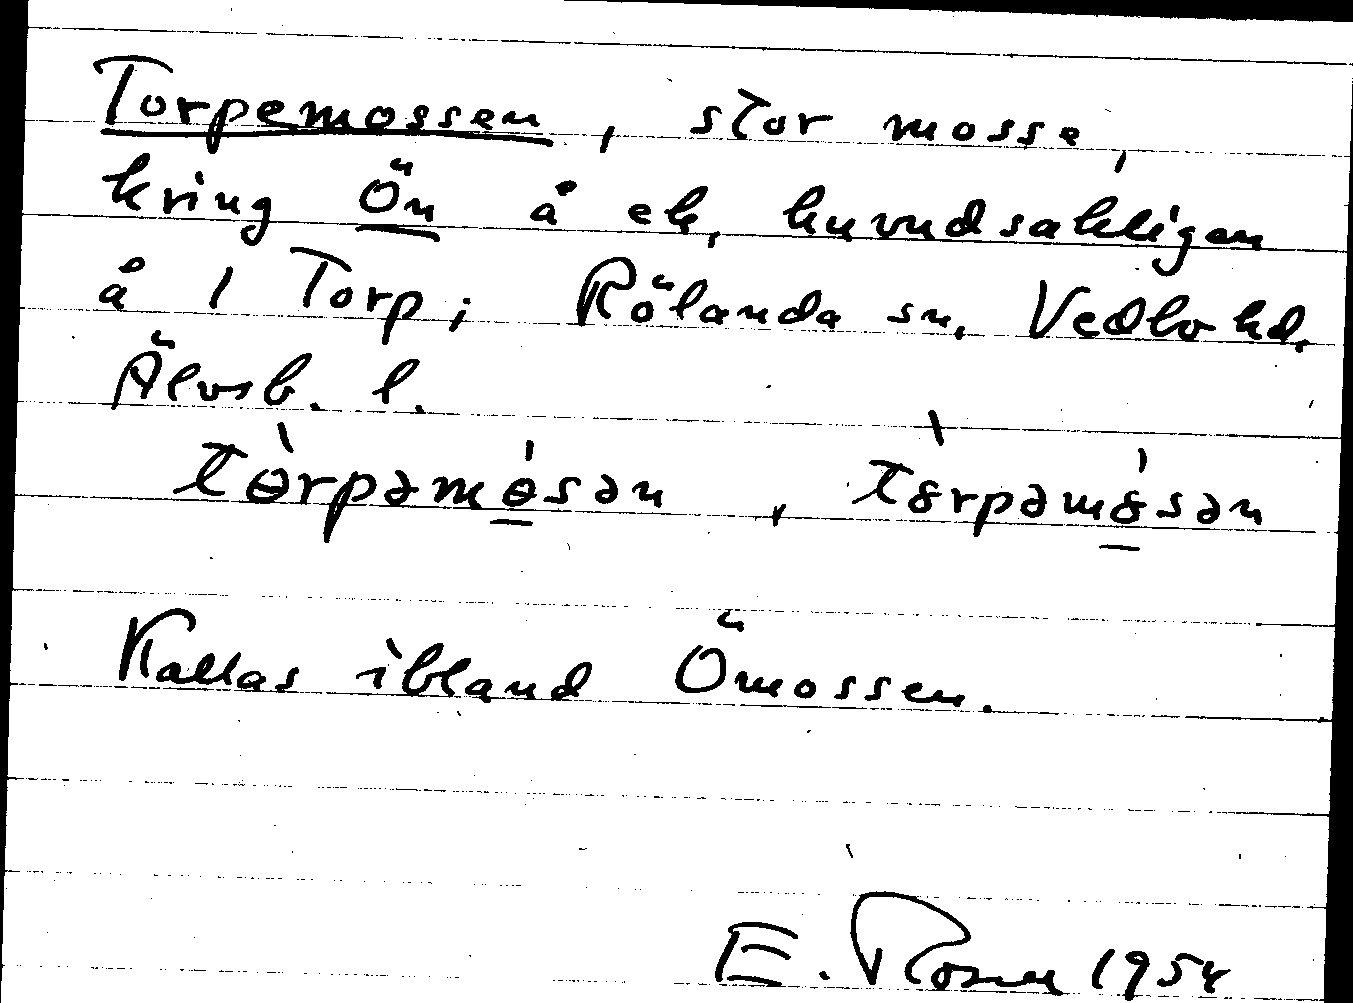 Torpemossen, stor mosse,
kring Ön å ek, huvudsakligen
å 1 Torp; Rölanda sn, Vedbo hd.
Älvsb. l.
tɵ̀rpəmɵ́sən, tȣ̀rpəmȣ́sən
Kallas ibland Ömossen.
E. Rosell 1954